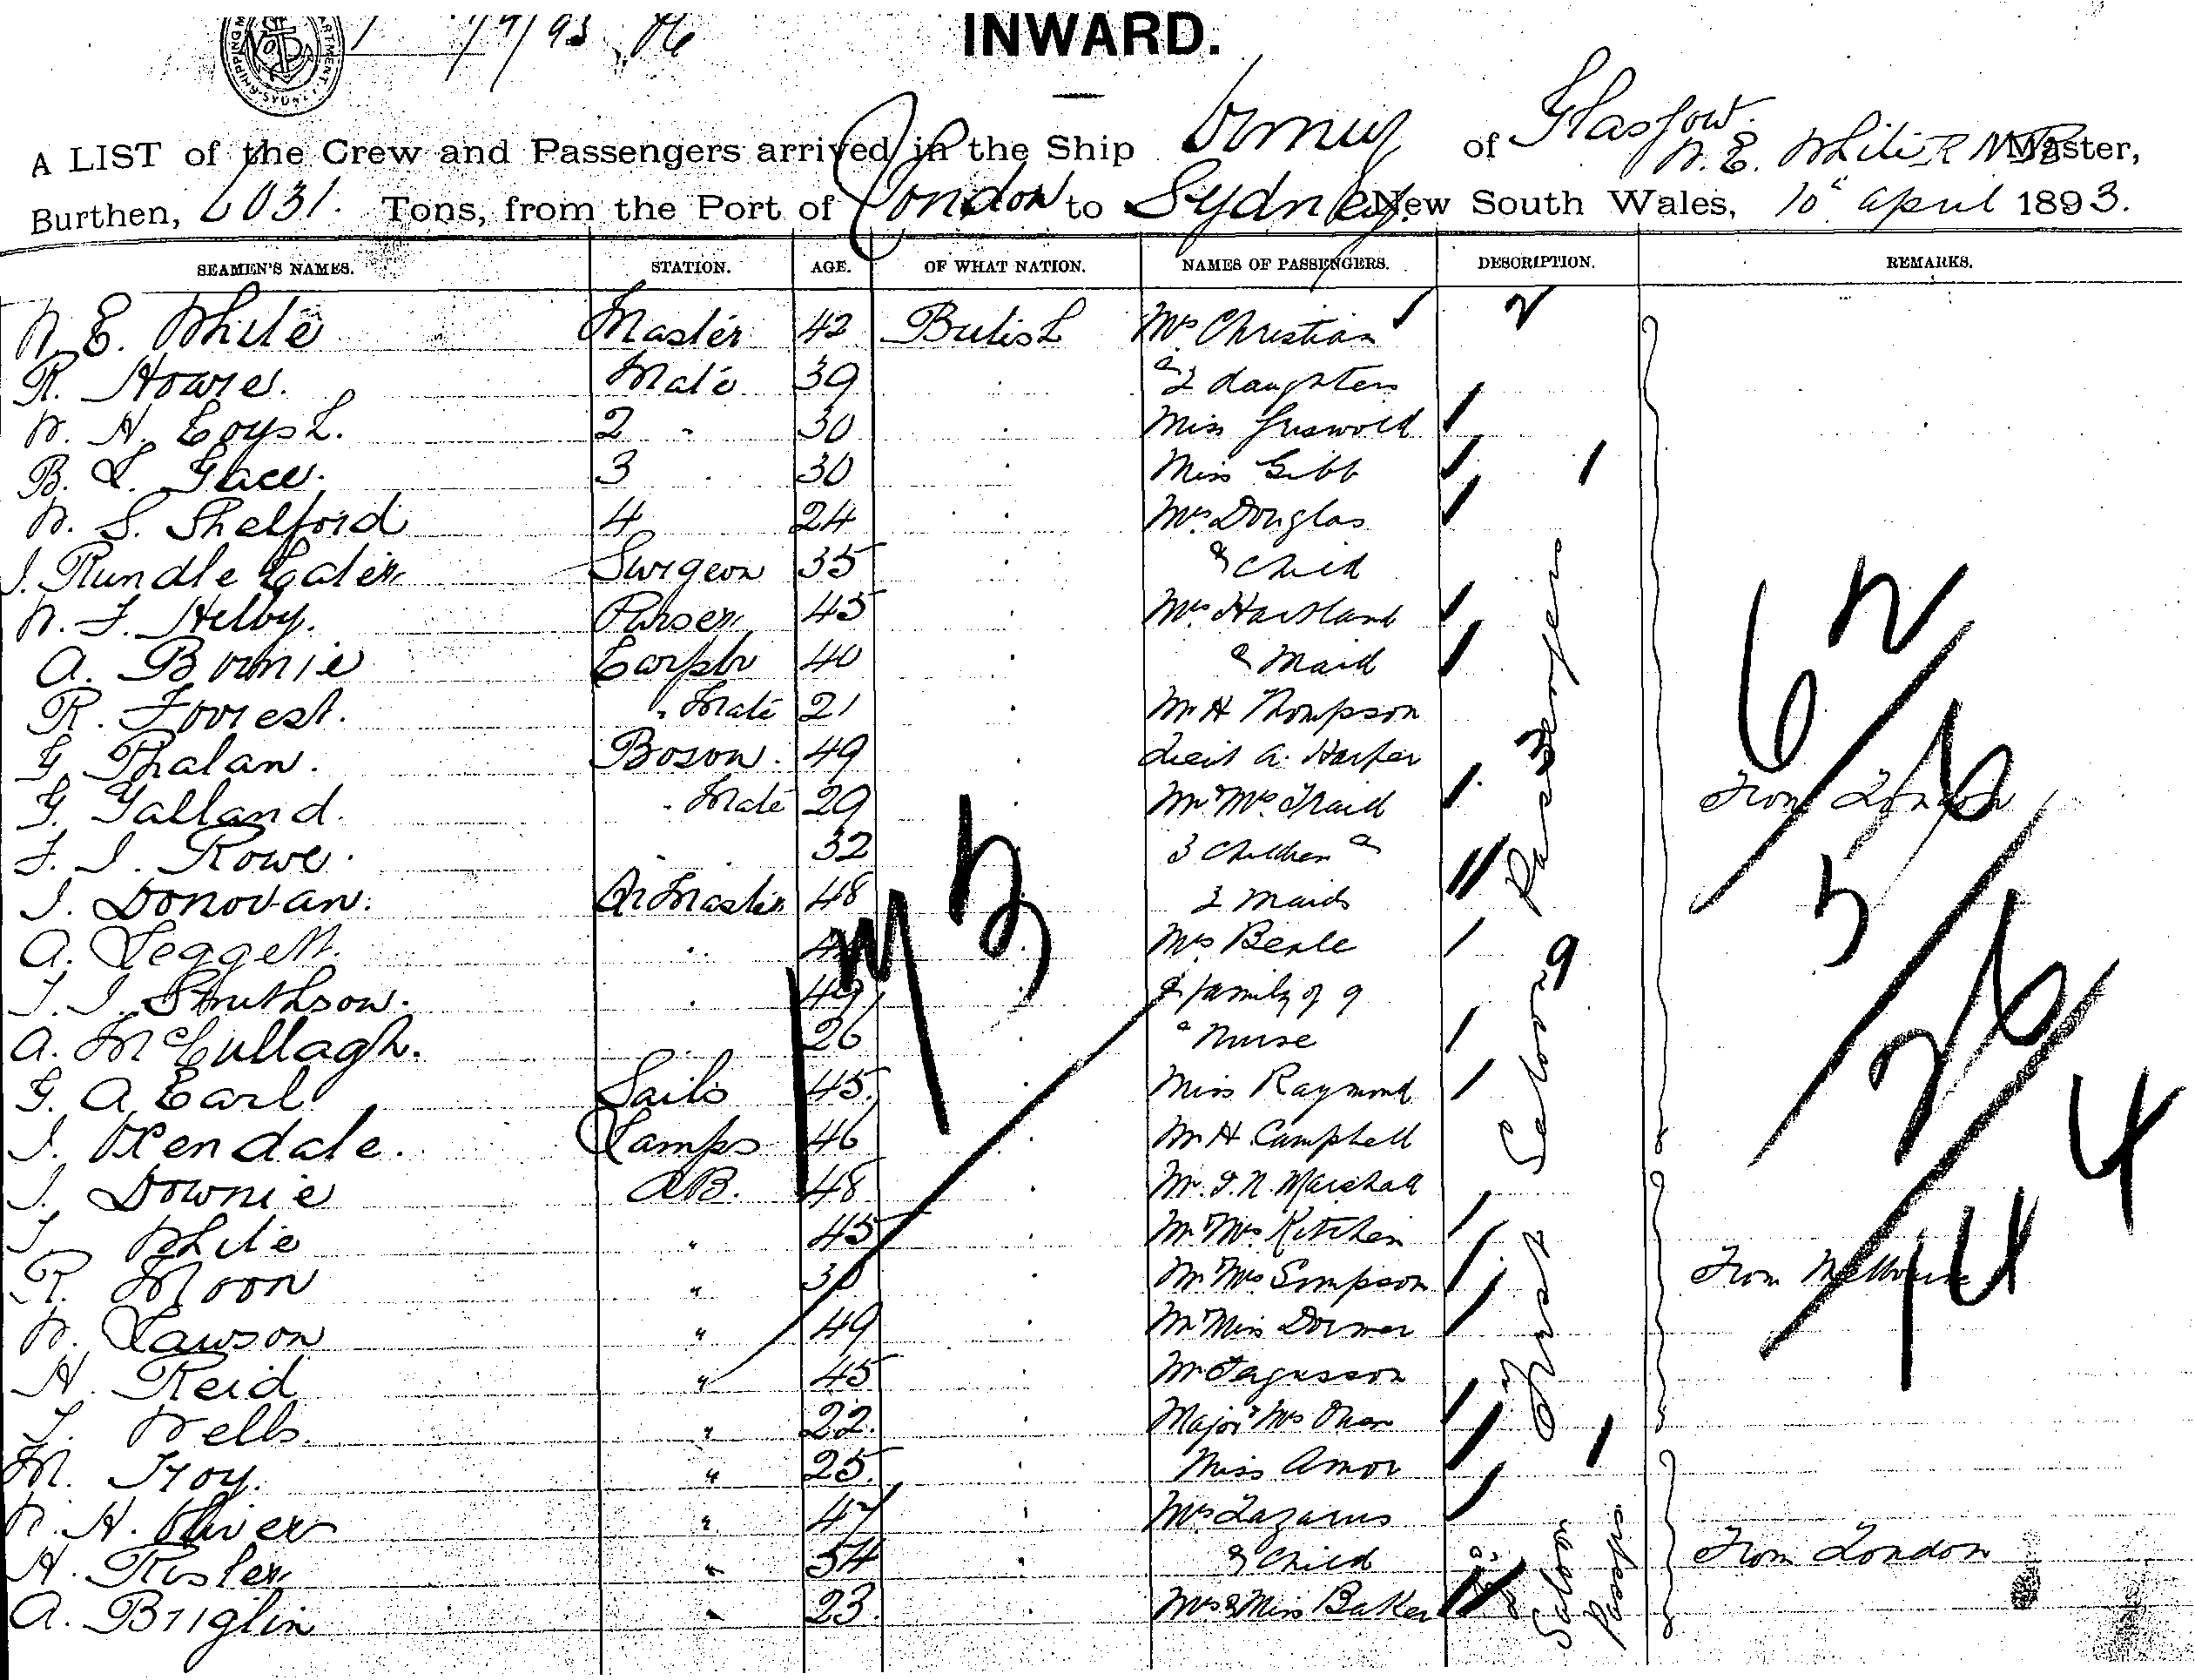 1/4/93
INWARD.
A LIST of the Crew and Passengers arrived in the Ship Ormuz of Glasgow. W. E. White R N R Master,
Burthen, 6031. Tons, from the Port of London to Sydney. New South Wales, 10" April 1893.
SEAMEN'S NAMES. STATION. AGE. OF WHAT NATION. NAMES OF PASSENGERS. DESCRIPTION. REMARKS.
W. E. White Master 42 British Mrs Christian 2
R. Howie. Mate 39 & 2 daughters
W. H. 2 " 30 Miss Griswold
B. 3 30 Miss Gibb 1
W. S. Shelford 4 24 Mrs Douglas
J. Rundle Surgeon 35 & Child
W. F. Helby. Purser 45 Mrs Hartland
A. Bownie Carptr 40 & Maid
R. Forrest. " Mate 21 Mr H Thompson
G. Phalan. Boson. 49 Lieut A. Harper
G. Galland. " Mate 29 Mr & Mrs Traid From London
F. J. Rowe. 32 3 Children &
J. Donovan. Qr Master 48 2 Maids
A. Leggett. Mrs Beale
49 & family of 9
A. McCullagh. 26 & Nurse
G. A Earl Sails 45. Miss Raymond
J. Oxendale. Lamps 46 Mr H Campbell
J. Downie AB. 48 Mr. Marshall
White " 45 Mr & Mrs Kitchen
R. Moon " Mr & Mrs Simpson From Melbourne
W. Lawson " 49 Mr & Miss Dormer
H. Reid " 45 Mr Fagusson
Wells. " 22. Major & Mrs
M. Troy. " 25. Miss Amor
W. H. Oliver " 47 Mrs Lazarus
H. " 34 & Child From London
A. Briglin " 23. Mrs & Miss Baker
First Saloon Passengers
Saloon Passgs
9
62
56
5
26
144
143